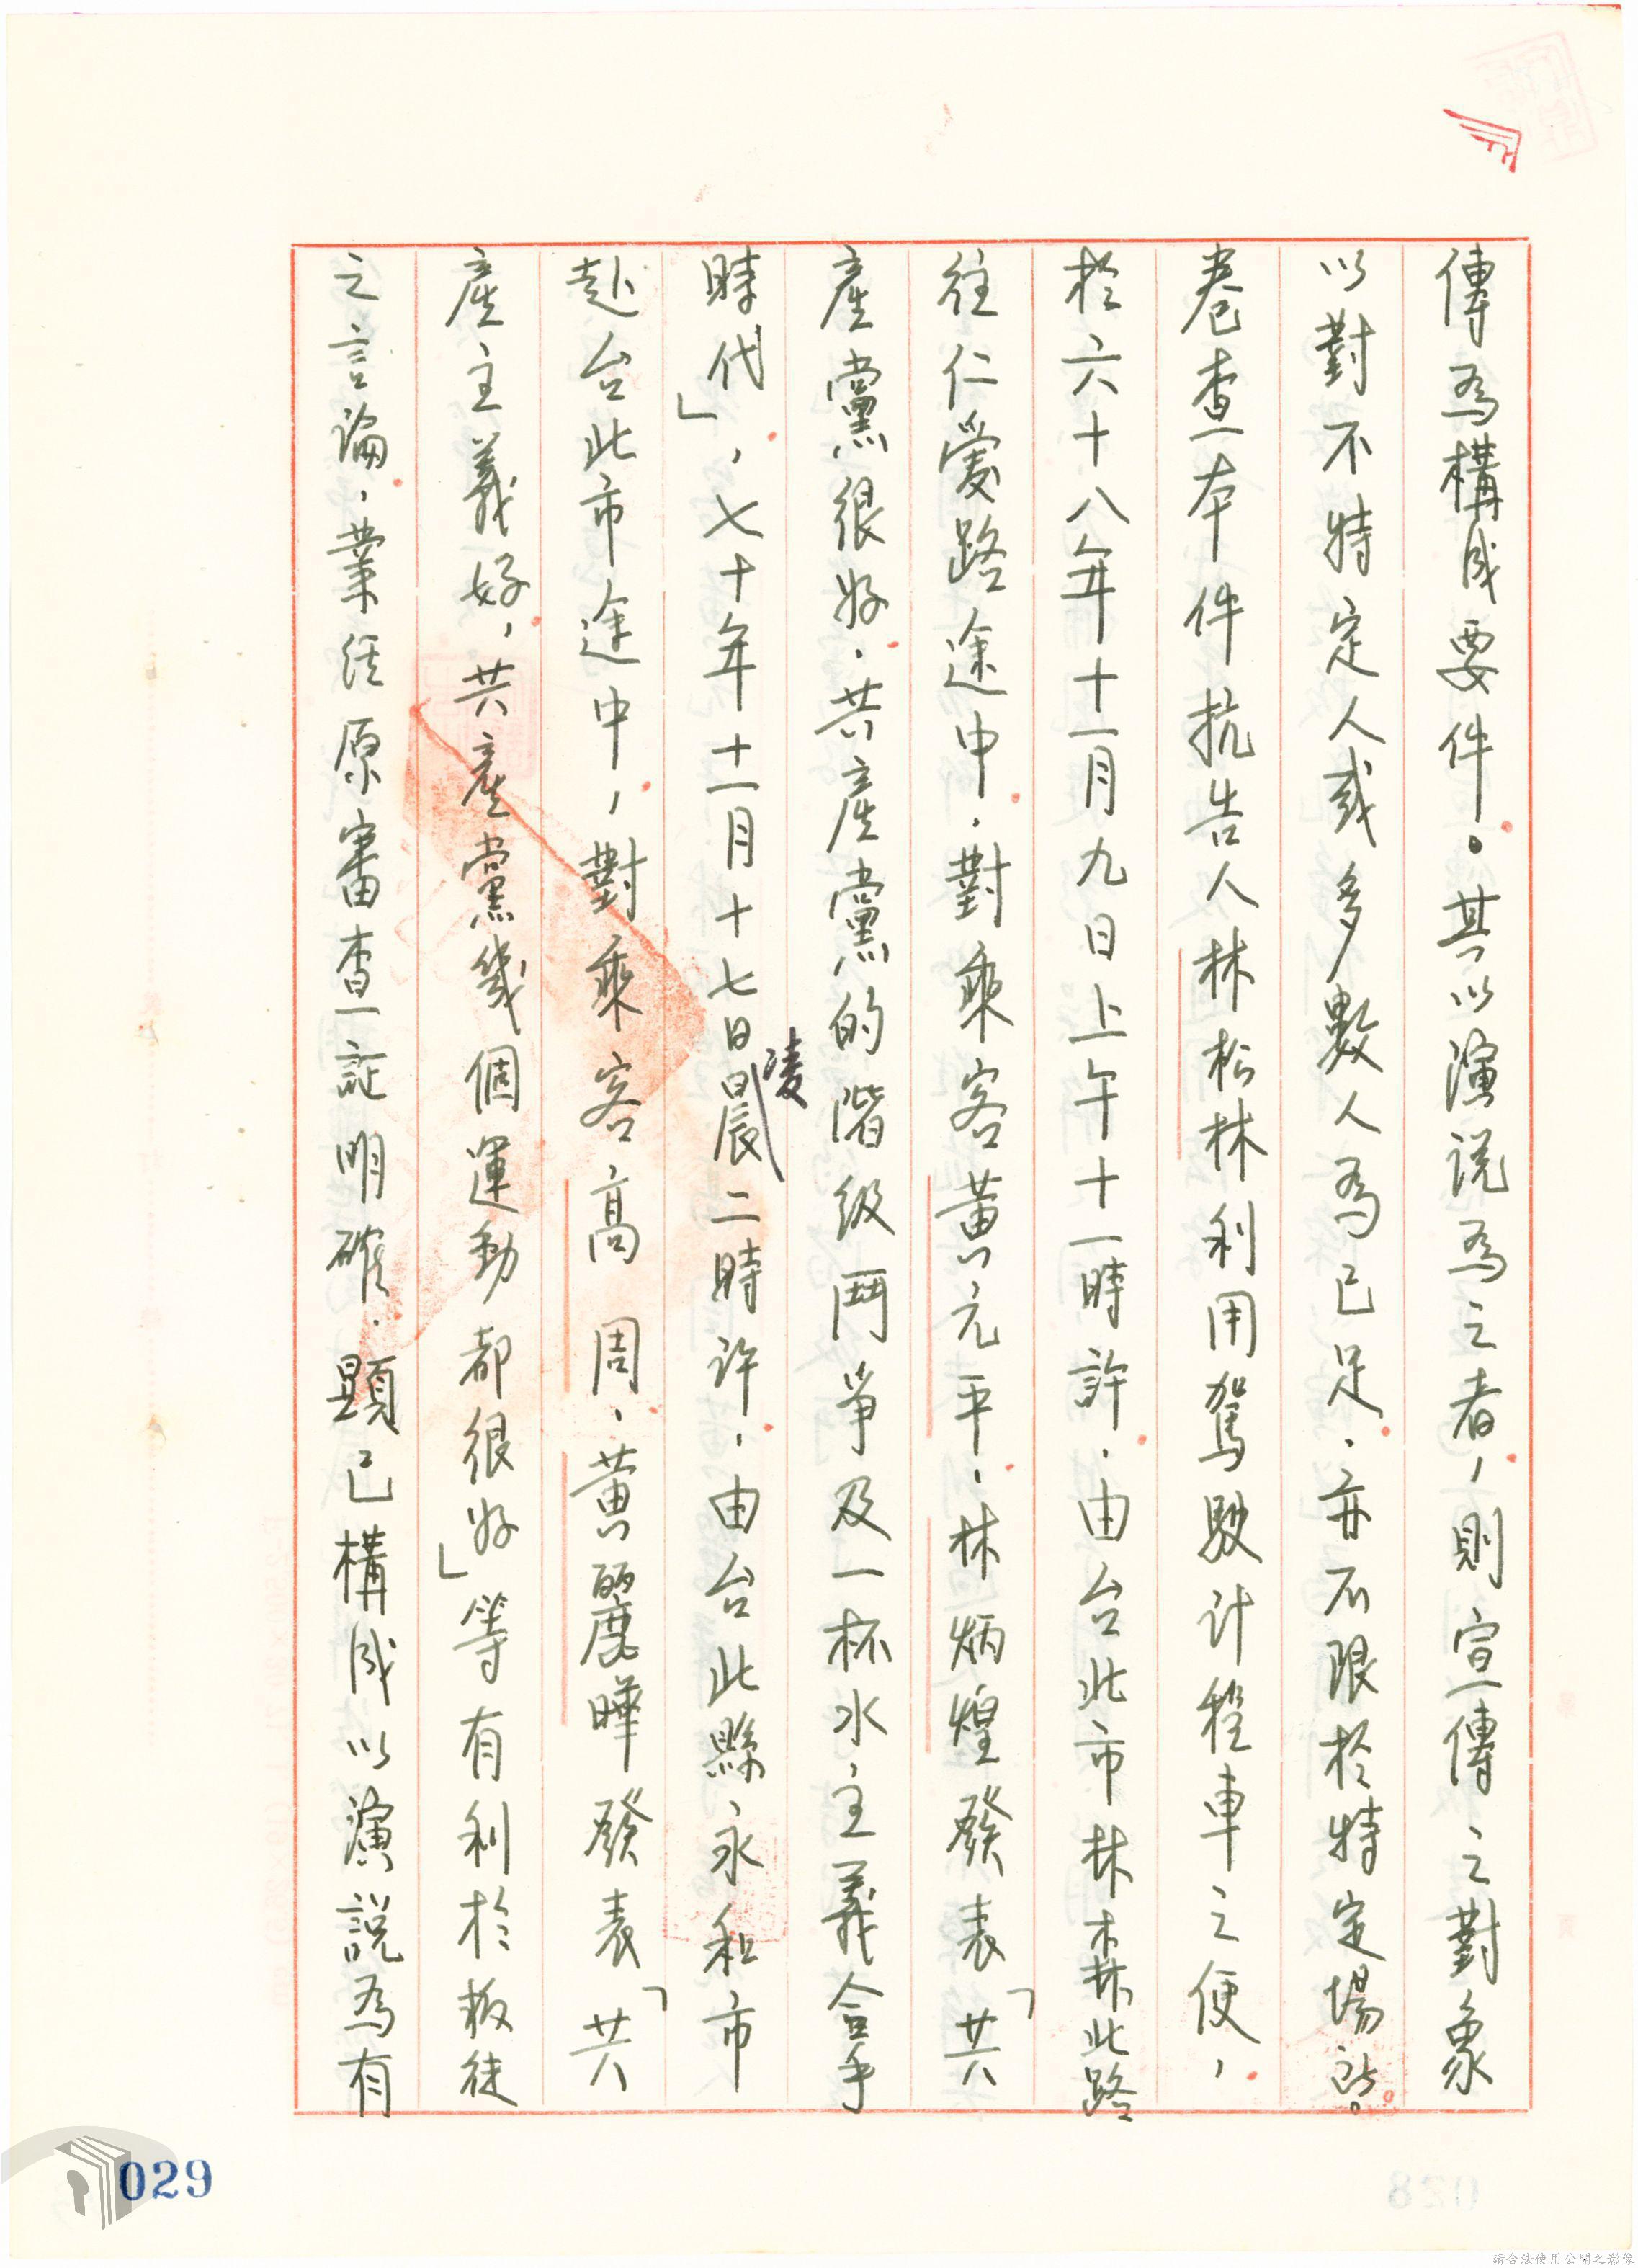 傳為構成要件。其以演說為之者，則宣傳之對象
以對不特定人或多數人為已足，並不限於特定場所。
卷查本件抗告人林松林利用駕駛計程車之便，
於六十八年十一月九日上午十一時許，由台北市林森北路
往仁愛路途中，對乘客黃元平、林炳煌發表「共
產黨很好，共產黨的階級鬥爭及一杯水主義合乎
時代」，七十年十一月十七日凌晨二時許，由台北縣永和市
赴台北市途中，對乘客高 周、黃麗曄發表「共
產主義好，共產黨幾個運動都很好」等有利於叛徒
之言論，業經原審查証明確，顯已構成以演說為有
029
請合法使用公開之影像